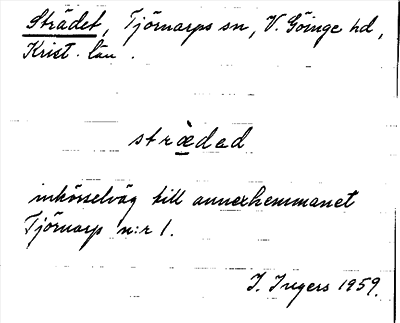 Strädet, Tjörnarps sn, V. Göinge hd,
Krist. län.
strædəd
inkörselväg till annexhemmanet
Tjörnarp n:r 1.
I. Ingers 1959.